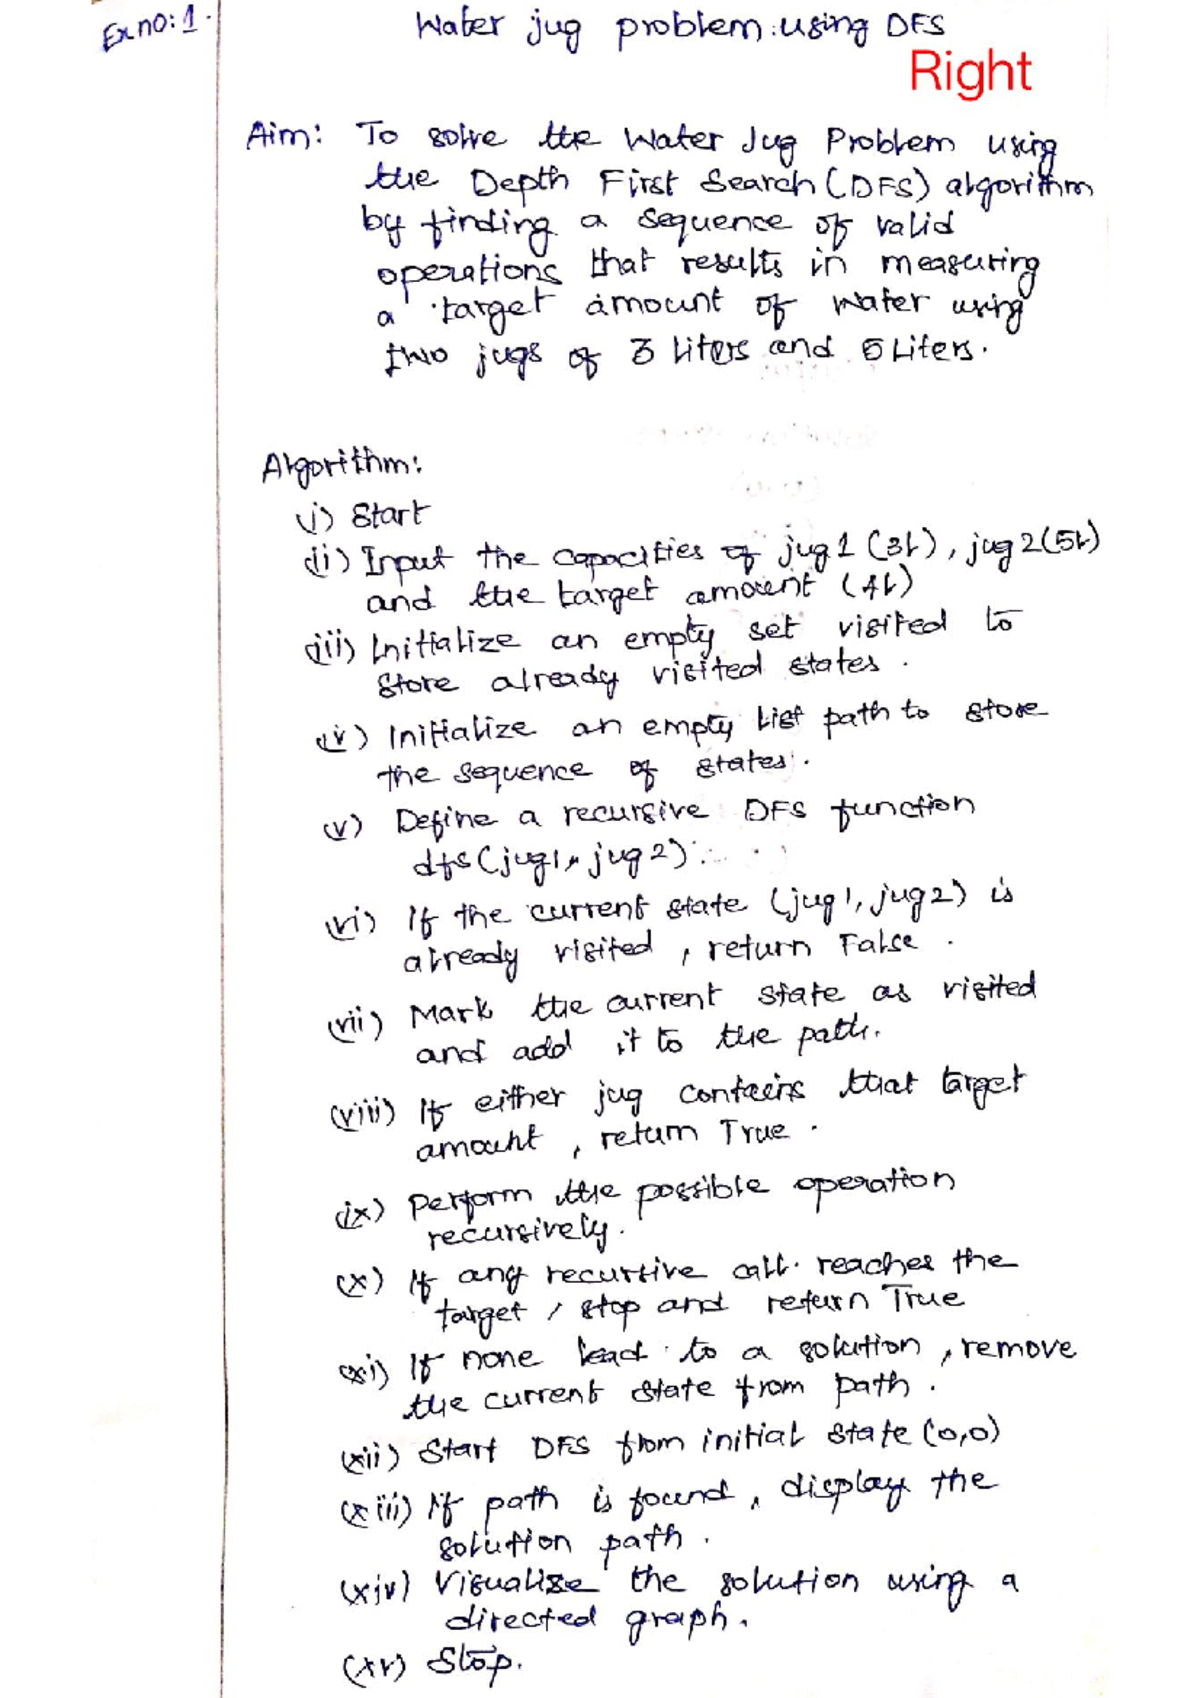 Ex no: 1.
Water jug problem using DFS
Right
Aim: To solve the Water Jug Problem using
the Depth First Search (DFS) algorithm
by finding a sequence of valid
operations that results in measuring
a target amount of water using
two jugs of 3 liters and 5 Liters.
Algorithm:
(i) Start
(ii) Input the capacities of jug 1 (3L), jug 2 (5L)
and the target amount (4L)
(iii) Initialize an empty set visited to
store already visited states.
(iv) Initialize an empty list path to store
the sequence of states.
(v) Define a recursive DFS function
dfs (jug1, jug2).
(vi) If the current state (jug1, jug2) is
already visited, return False.
(vii) Mark the current state as visited
and add it to the path.
(viii) If either jug contains that target
amount, return True.
(ix) Perform the possible operation
recursively.
(x) If any recursive call reaches the
target, stop and return True
(xi) If none lead to a solution, remove
the current state from path.
(xii) Start DFS from initial state (0,0)
(xiii) If path is found, display the
solution path.
(xiv) Visualize the solution using a
directed graph.
(xv) Stop.